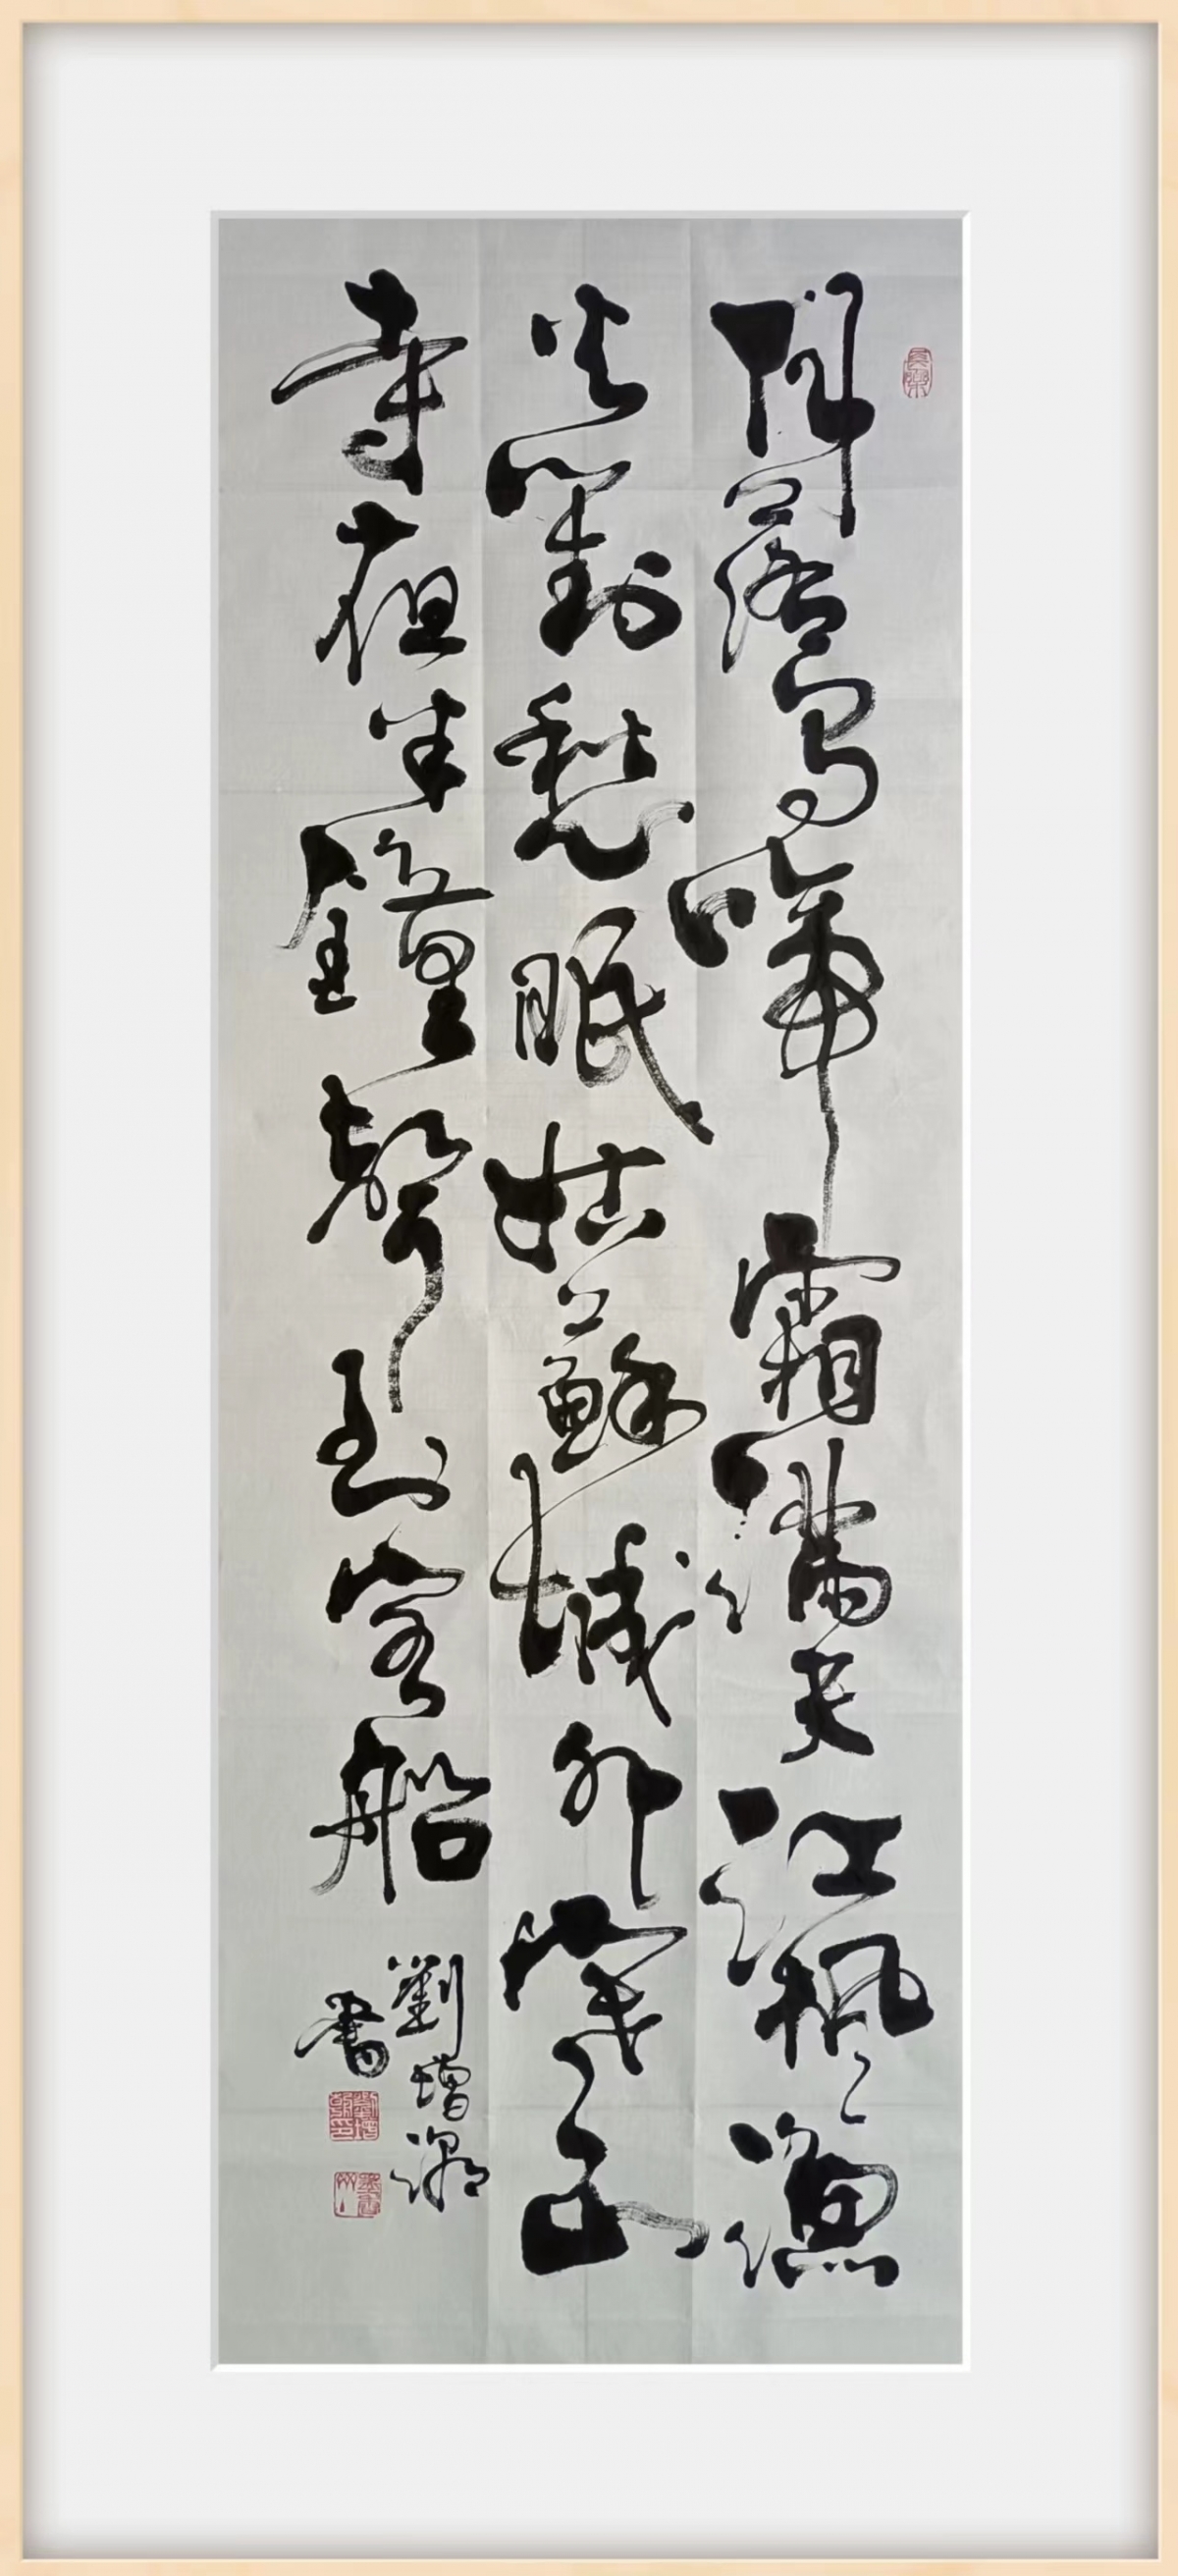 月落烏啼霜滿天江楓漁
火對愁眠姑蘇城外寒山
寺夜半鐘聲到客船
劉增
書